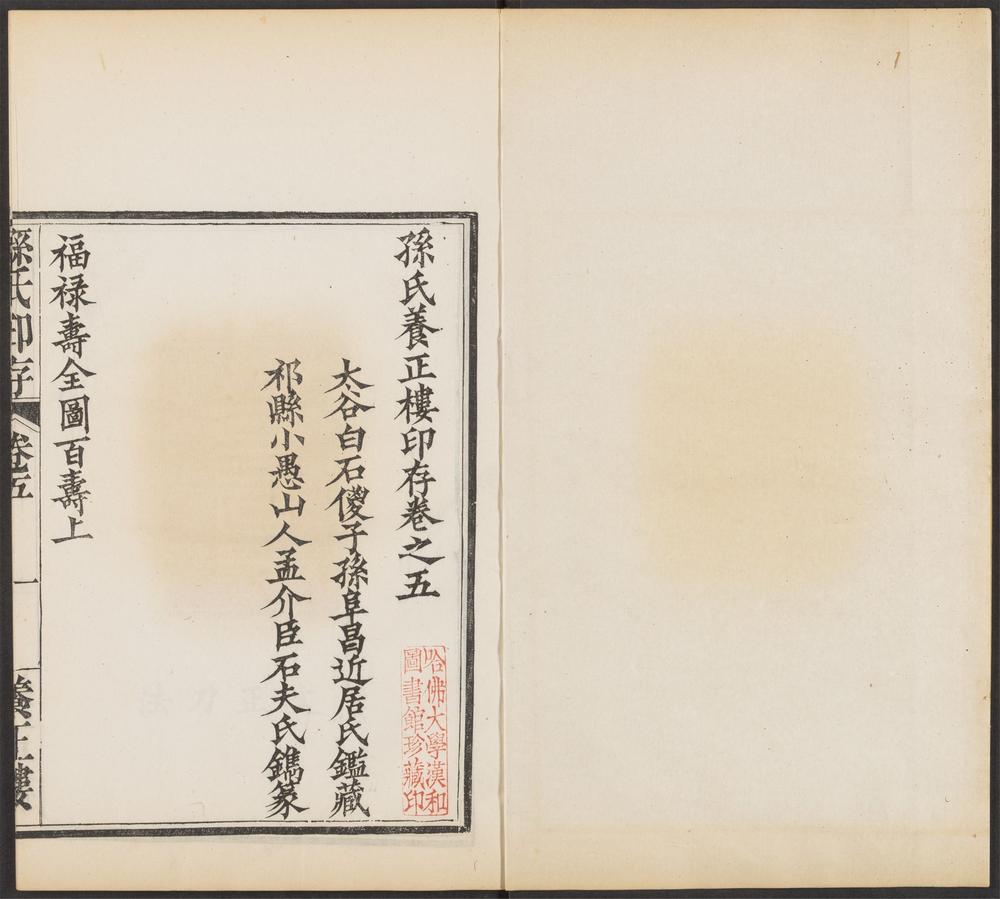 孫氏養正樓印存卷之五
哈佛大學漢和
圖書館珍藏印
太谷白石傁子孫阜昌近居氏鑑藏
祁縣小愚山人孟介臣石夫氏鐫篆
福禄壽全圖百壽上
孫氏印存 卷五 一 養正樓